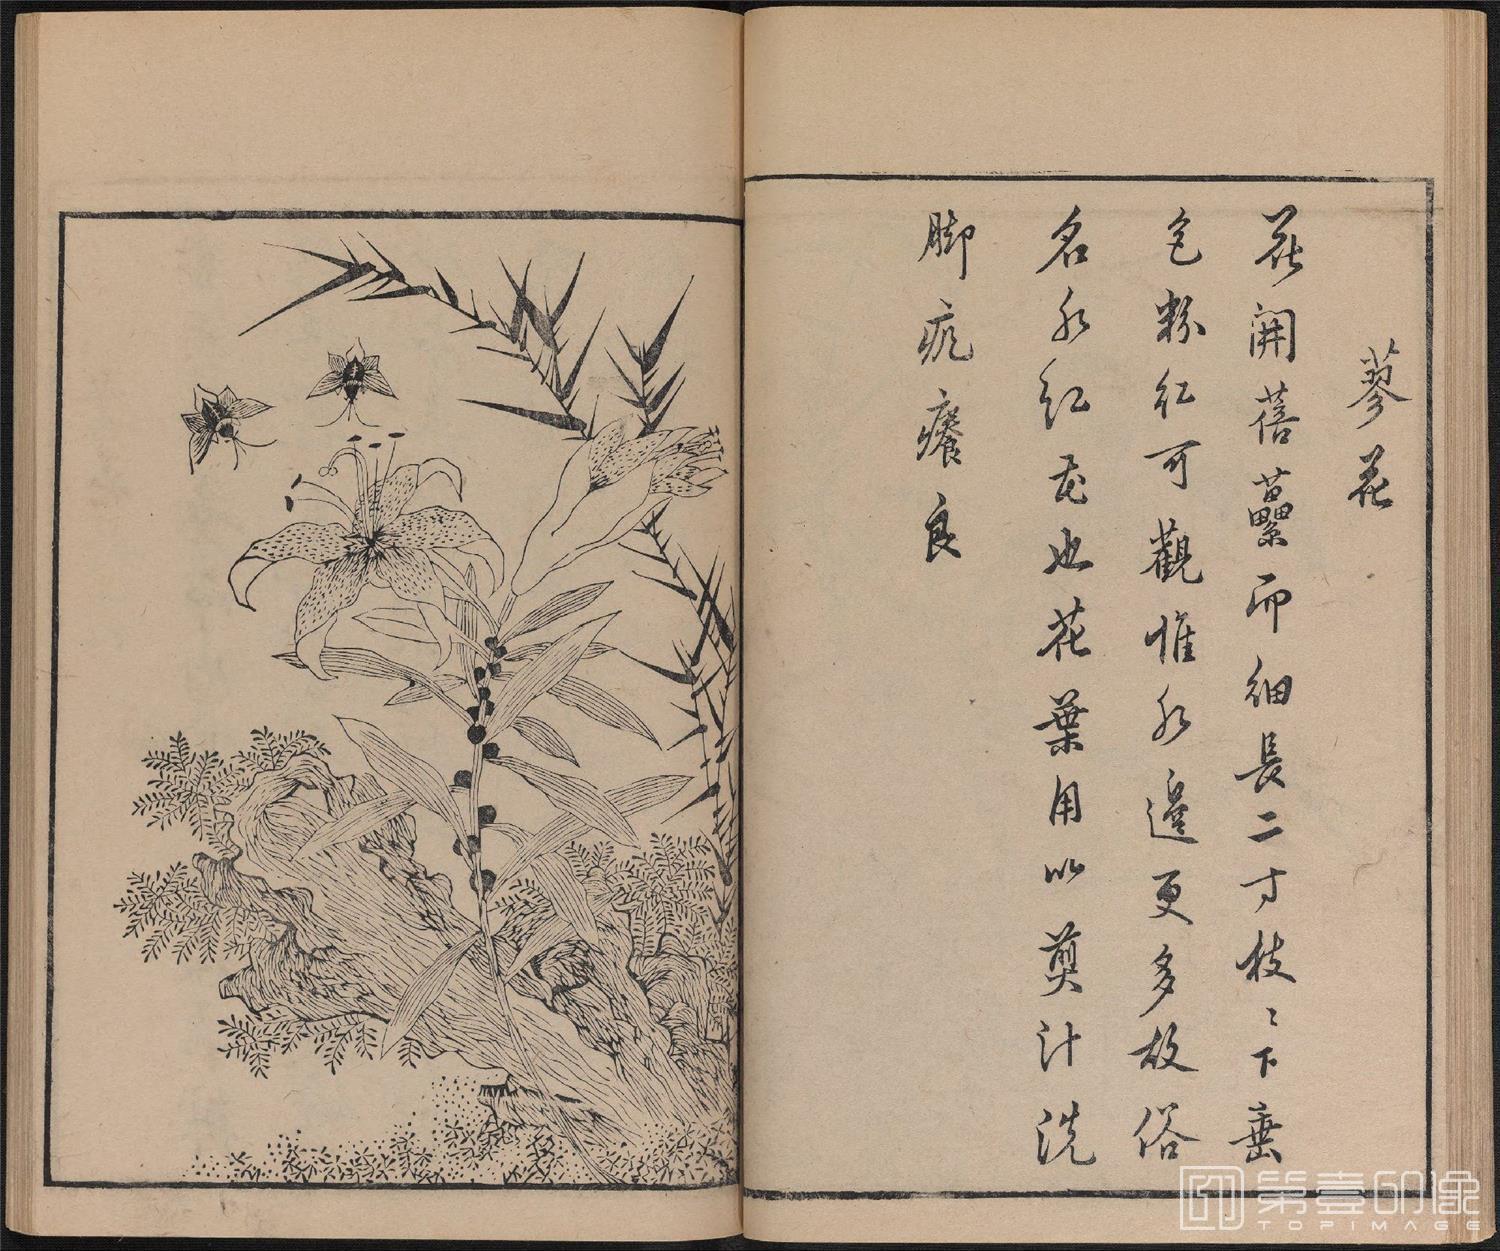 蓼花
花開蓓蘽而細長二寸枝〻下垂
色粉紅可觀惟水邊更多故俗
名水紅花也花葉用以煎汁洗
脚疪癢良
第壹印像
TOPIMAGE